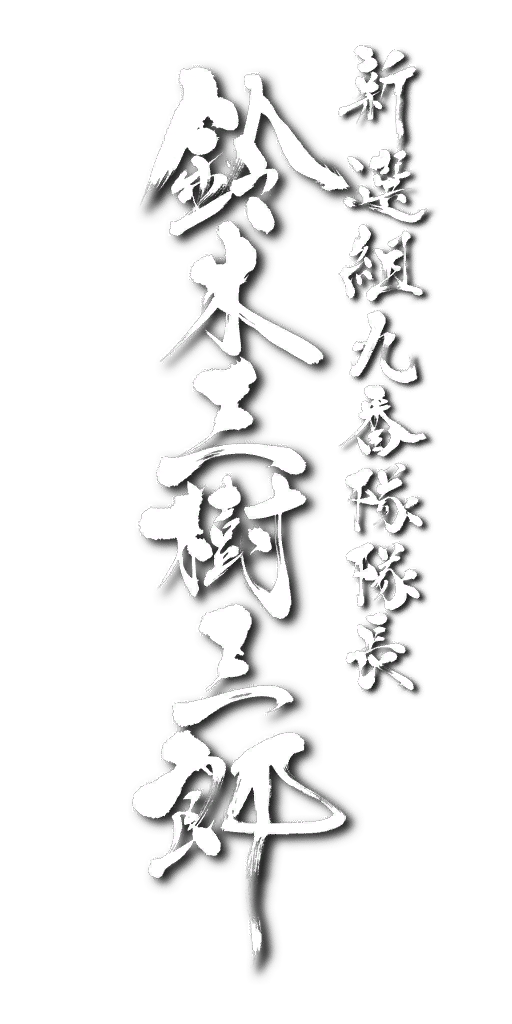 新選組九番隊隊長
鈴木三樹三郎